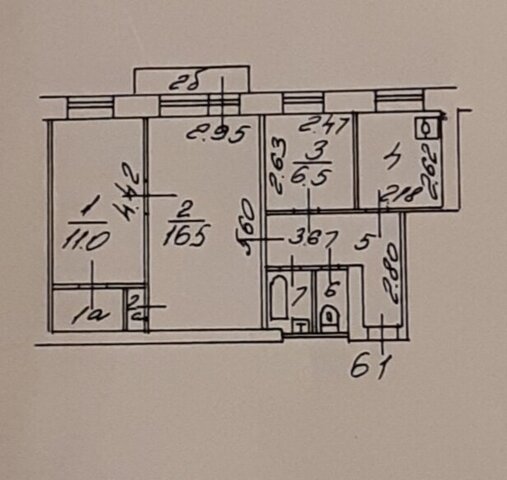 2б
2.95
2.47
1
11.0
4.42
2
16.5
5.60
2.63
3
6.5
4
2.62
2.18
3.67
5
2.80
1а
2а
7
6
61